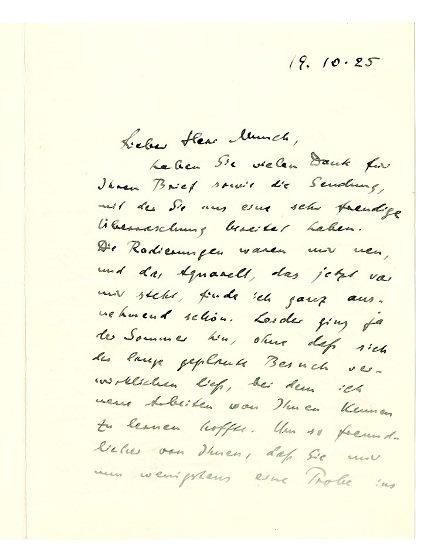 19.10.25
Lieber Herr Munch,
haben Sie vielen Dank für
Ihren Brief sowie die Sendung,
mit der Sie uns eine sehr freudige
Überraschung bereitet haben.
Die Radierungen waren mir neu,
und das Aquarell, das jetzt vor
mir steht, finde ich ganz aus-
nehmend schön. Leider ging ja
der Sommer hin, ohne daß sich
der lange geplante Besuch ver-
wirklichen ließ, bei dem ich
neue Arbeiten von Ihnen kennen
zu lernen hoffte. Um so freund-
licher von Ihnen, daß Sie mir
nun wenigstens eine Probe ins